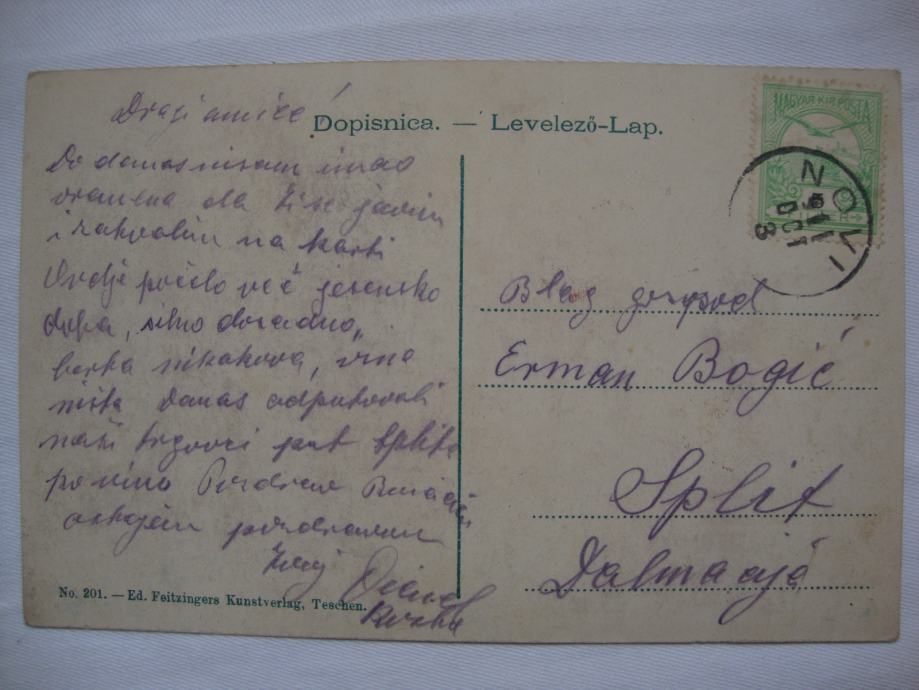 Dragi amice!
Dopisnica. — Levelező-Lap.
MAGYAR KIR POSTA
NOVI
911
OCT
Do danas nisam imao
vremena da ti se javim
i zahvalim na karti
Ovdje počelo već jesensko
doba, silno dosadno,
berba nikakova, vina
ništa Danas odputovali
naši trgovci put Splita
po vino Pozdrav
ostajem pozdravom
Tvoj
Blag gospod
Erman Bogić
Split
Dalmacija
No. 201. — Ed. Feitzingers Kunstverlag, Teschen.